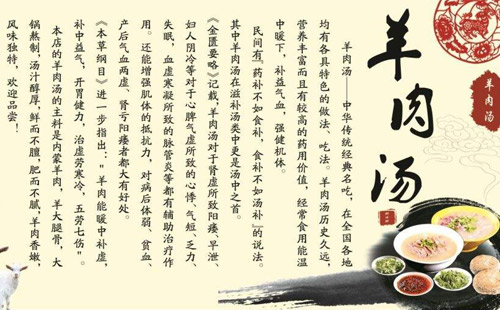 羊肉汤
羊肉汤
羊肉汤——中华传统经典名吃，在全国各地
均有各具特色的做法、吃法。羊肉汤历史久远，
营养丰富而且有较高的药用价值，经常食用能温
中暖下，补益气血，强健机体。
民间有"药补不如食补，食补不如汤补"的说法。
其中羊肉汤在滋补汤类中更是汤中之首。
《金匮要略》记载：羊肉汤对于肾虚所致阳痿、早泄、
妇人阴冷等对于心脾气虚所致的心悸、气短、乏力、
失眠，血虚寒凝所致的脉管炎等都有辅助治疗作
用。还能增强肌体的抵抗力，对病后体弱、贫血、
产后气血两虚、肾亏阳痿者都大有好处。
《本草纲目》进一步指出："羊肉能暖中补虚，
补中益气，开胃健力，治虚劳寒冷，五劳七伤"。
本店的羊肉汤的主料是内蒙羊肉，羊大腿骨，大
锅熬制，汤汁醇厚，鲜而不膻，肥而不腻，羊肉香嫩，
风味独特，欢迎品尝！